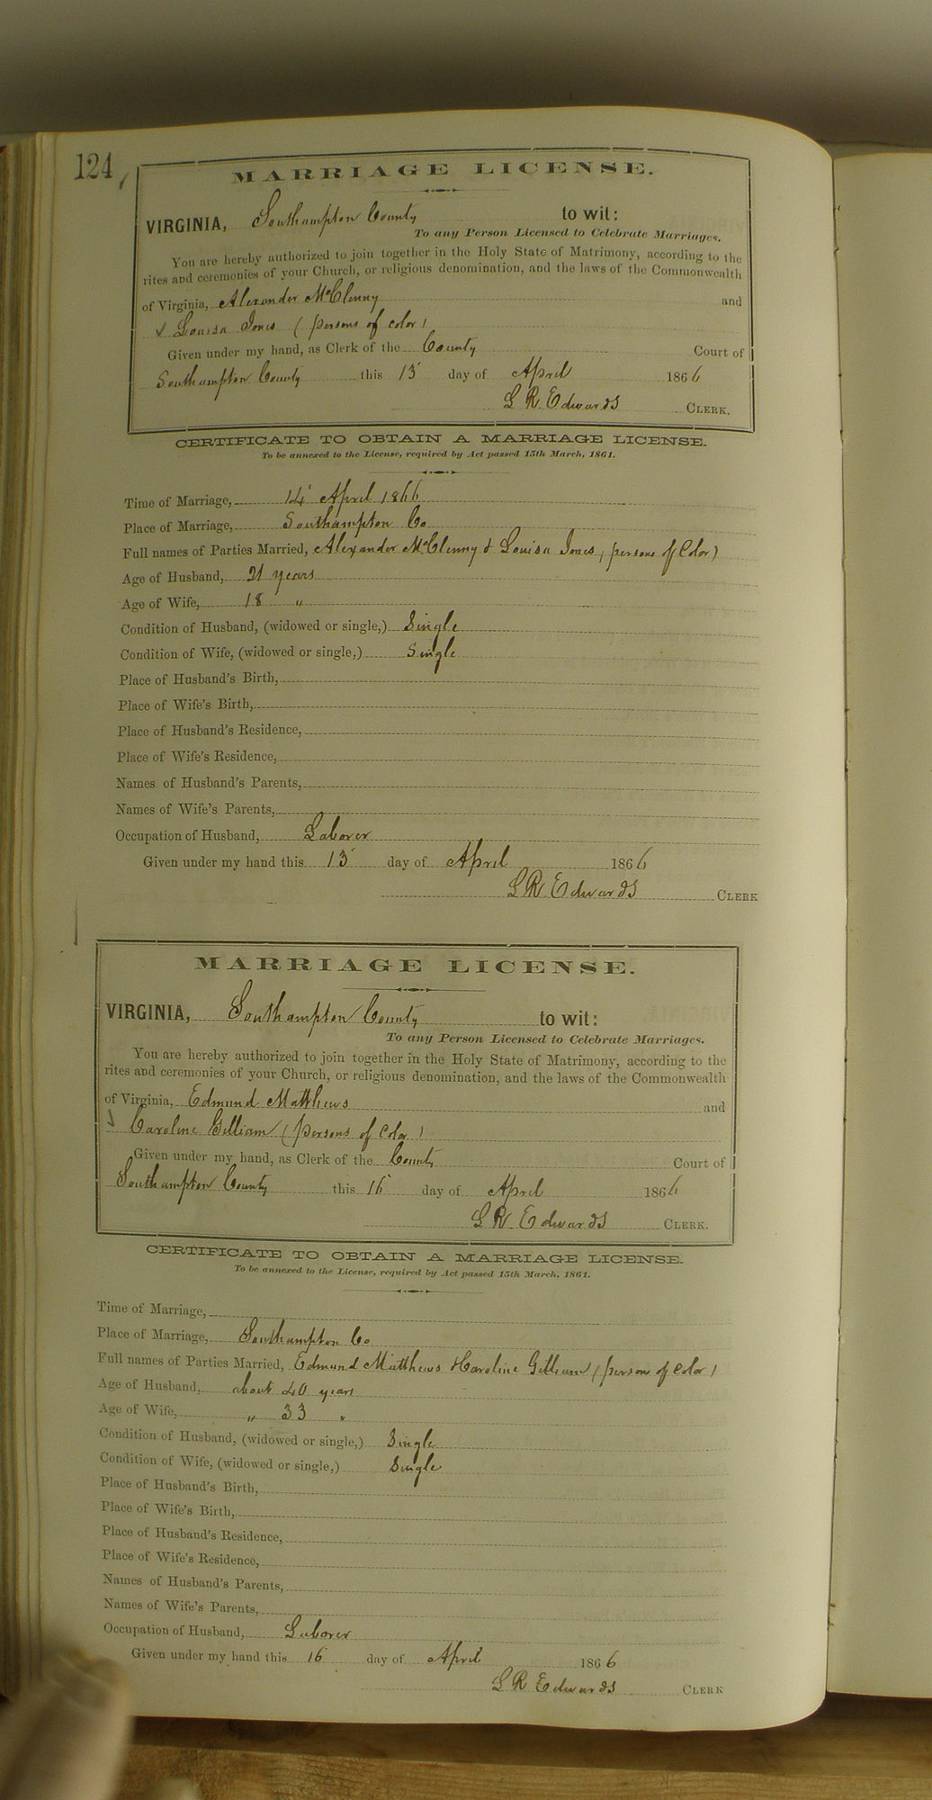 124
MARRIAGE LICENSE.
VIRGINIA, Southampton County to wit:
To any Person Licensed to Celebrate Marriages.
You are hereby authorized to join together in the Holy State of Matrimony, according to the
rites and ceremonies of your Church, or religious denomination, and the laws of the Commonwealth
of Virginia, Alexander McClenny and
Louisa Jones (persons of color)
Given under my hand, as Clerk of the County Court of
Southampton County this 13 day of April 1866
L R Edwards CLERK.
CERTIFICATE TO OBTAIN A MARRIAGE LICENSE.
To be annexed to the License, required by Act passed 15th March, 1861.
Time of Marriage, 14 April 1866
Place of Marriage, Southampton Co
Full names of Parties Married, Alexander McClenny & Louisa Jones, persons of Color)
Age of Husband, 21 years
Age of Wife, 18 "
Condition of Husband, (widowed or single,) Single
Condition of Wife, (widowed or single,) Single
Place of Husband's Birth,
Place of Wife's Birth,
Place of Husband's Residence,
Place of Wife's Residence,
Names of Husband's Parents,
Names of Wife's Parents,
Occupation of Husband, Laborer
Given under my hand this 13 day of April 1866
L R Edwards CLERK
MARRIAGE LICENSE.
VIRGINIA, Southampton County to wit:
To any Person Licensed to Celebrate Marriages.
You are hereby authorized to join together in the Holy State of Matrimony, according to the
rites and ceremonies of your Church, or religious denomination, and the laws of the Commonwealth
of Virginia, Edmund Matthews and
Caroline Gilliam (persons of Color)
Given under my hand, as Clerk of the County Court of
Southampton County this 16 day of April 1866
L R Edwards CLERK.
CERTIFICATE TO OBTAIN A MARRIAGE LICENSE.
To be annexed to the License, required by Act passed 15th March, 1861.
Time of Marriage,
Place of Marriage, Southampton Co
Full names of Parties Married, Edmund Matthews & Caroline Gilliam (persons of Color)
Age of Husband, about 40 years
Age of Wife, " 33 "
Condition of Husband, (widowed or single,) Single
Condition of Wife, (widowed or single,) Single
Place of Husband's Birth,
Place of Wife's Birth,
Place of Husband's Residence,
Place of Wife's Residence,
Names of Husband's Parents,
Names of Wife's Parents,
Occupation of Husband, Laborer
Given under my hand this 16 day of April 1866
L R Edwards CLERK